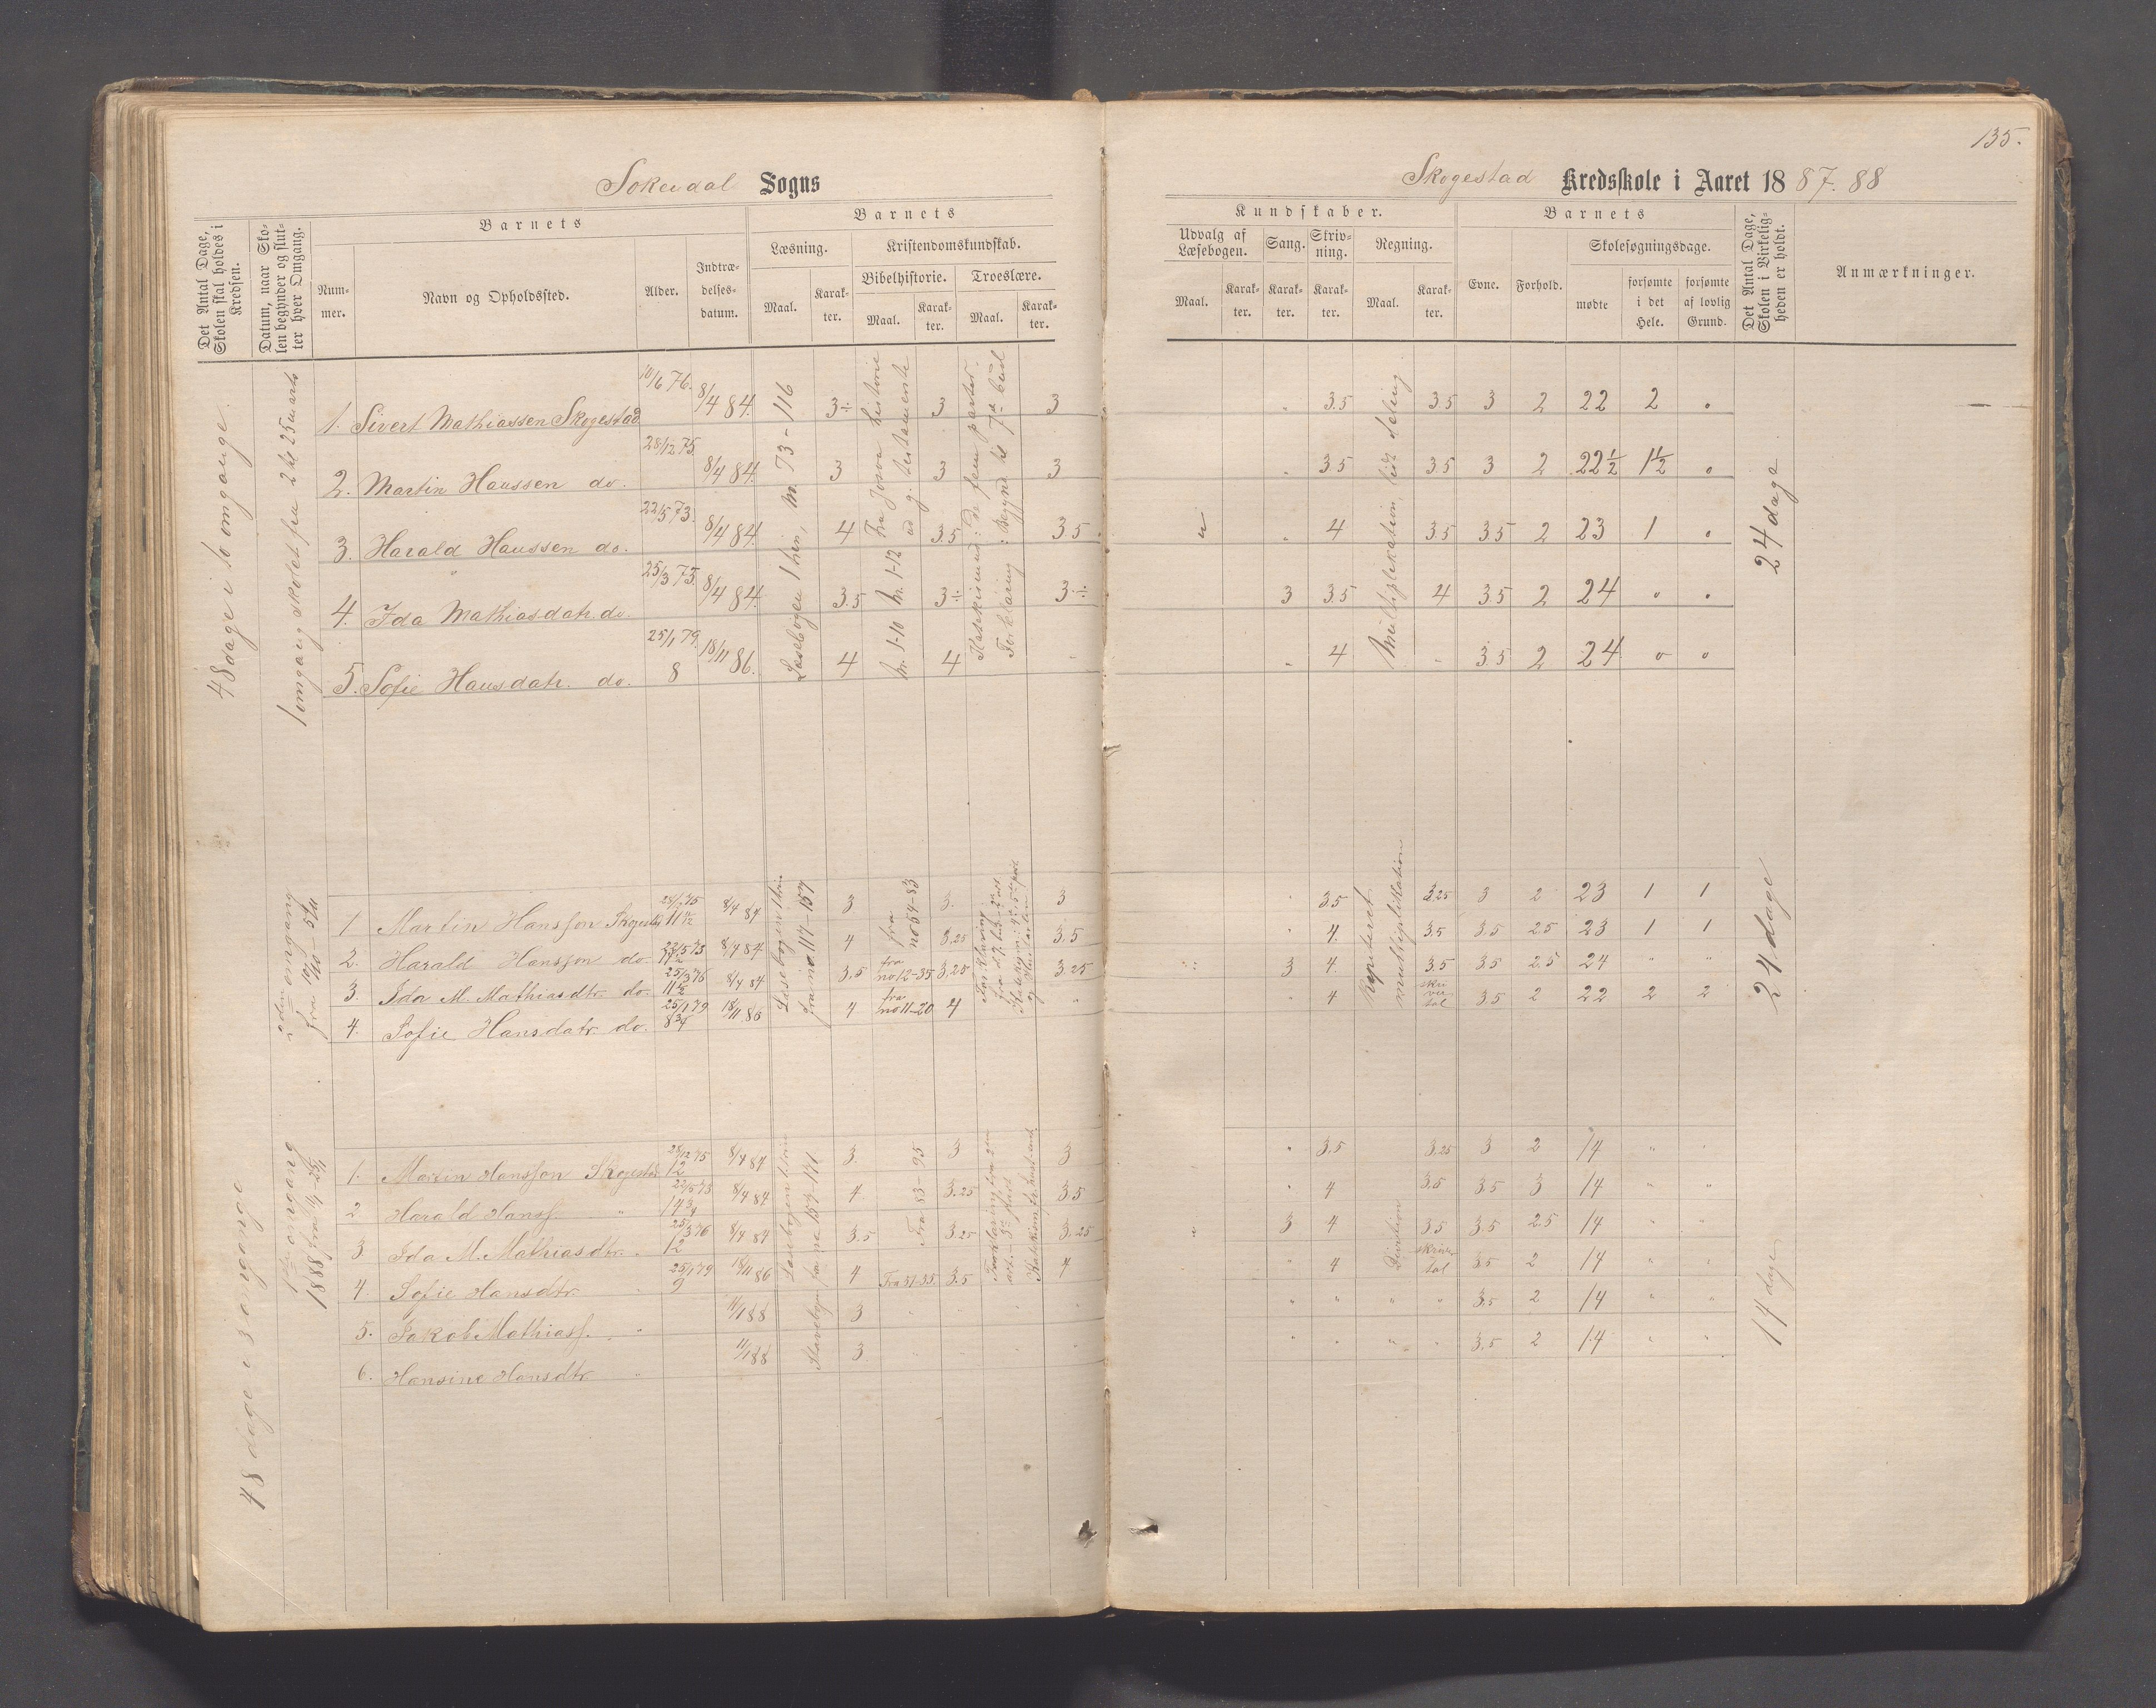 135.
Sokendal Sogns
Skogestad Kredsskole i Aaret 1887-88
Det Antal Dage, Skolen skal holdes i Kredsen.
Datum, naar Skolen begynder og slutter hver Omgang.
Barnets
Nummer.
Navn og Opholdssted.
Alder.
Indtrædelsesdatum.
Barnets
Læsning.
Maal.
Karakter.
Kristendomskundskab.
Bibelhistorie.
Maal.
Karakter.
Troeslære.
Maal.
Karakter.
Kundskaber.
Udvalg af Læsebogen.
Maal.
Karakter.
Sang.
Karakter.
Skrivning.
Karakter.
Regning.
Maal.
Karakter.
Barnets
Evne.
Forhold.
Skolesøgningsdage.
mødte
forsømte i det Hele.
forsømte af lovlig Grund.
Det Antal Dage, Skolen i Virkeligheden er holdt.
Anmærkninger.
48 dage i to omgange.
1 omgang skolet fra 2 til 25 marts
Læsebogen 1 trin, nr. 73-116
Fra Josva historie ud g. testamente
Katekismus: de fem parter.
Forklaring: Begynd til 7de bud
Multiplikation lidt deling
24 dage
1. Sivert Mathiassen Skogestad 10/6 76. 8/4 84. 3÷ 3 3 3.5 3.5 3 2 22 2 0
2. Martin Hanssen do. 28/12 75. 8/4 84. 3 3 3 3.5 3.5 3 2 22½ 1½ 0
3. Harald Hanssen do. 22/5 73. 8/4 84. 4 3.5 3.5 4 3.5 3.5 2 23 1 0
4. Ida Mathiasdatr. do. 25/3 75. 8/4 84. 3.5 nr. 1-12 3÷ 3÷ 3 3.5 4 3.5 2 24 0 0
5. Sofie Hansdatr. do. 25/1 79. 8 18/11 86. 4 nr. 1-10 4 4 3.5 2 24 0 0
2den omgang fra 10/10 - 5/11
Læsebogen 1 trin fra no 117-157
Repeteret multiplikation
24 dage
1 Martin Hansson Skogestad 28/12 75 11½ 8/4 84 3 fra no 64-83 3. 3 3.5 3.25 3 2 23 1 1
2. Harald Hansson do. 22/5 73 8/4 84 4 3.25 3.5 4. 3.5 3.5 2.5 23 1 1
3. Ida M. Mathiasdtr. do. 25/3 76 8/4 84 3.5 fra no 12-35 3.25 3.25 3 4. 3.5 3.5 2.5 24 " "
4. Sofie Hansdatr. do. 25/1 79 8¾ 18/11 86 4 fra no 11-20 4 " 4 skriver tal 3.5 2 22 2 2
48 dage i 3 omgange
1ste omgang 1888 fra 11/1-25/1
Læsebogen 1 trin fra no 157-171
Division
14 dage
1. Martin Hansson Skogestad 28/12 75 12 8/4 84 3. Fra 83-95 3 3 " 3.5 3.25 3 2 14 " "
2. Harald Hanss. " 22/5 73 14¾ 8/4 84 4 3.25 3.5 " 4 3.5 3.5 3 14 " "
3 Ida M. Mathiasdtr. " 25/3 76 12 8/4 84 3.5 3.25 3.25 3 4 3.5 3.5 2.5 14 " "
4. Sofie Hansdtr. " 25/1 79 9 18/11 86 4 Fra 31-35 3.5 4 " 4 skriver tal 3.5 2 14 " "
5. Jakob Mathiass. " 11/1 88 3 " " " " " " " " 3.5 2 14 " "
6. Hansine Hansdtr " 11/1 88 3 " " " " " " " " 3.5 2 14 " "